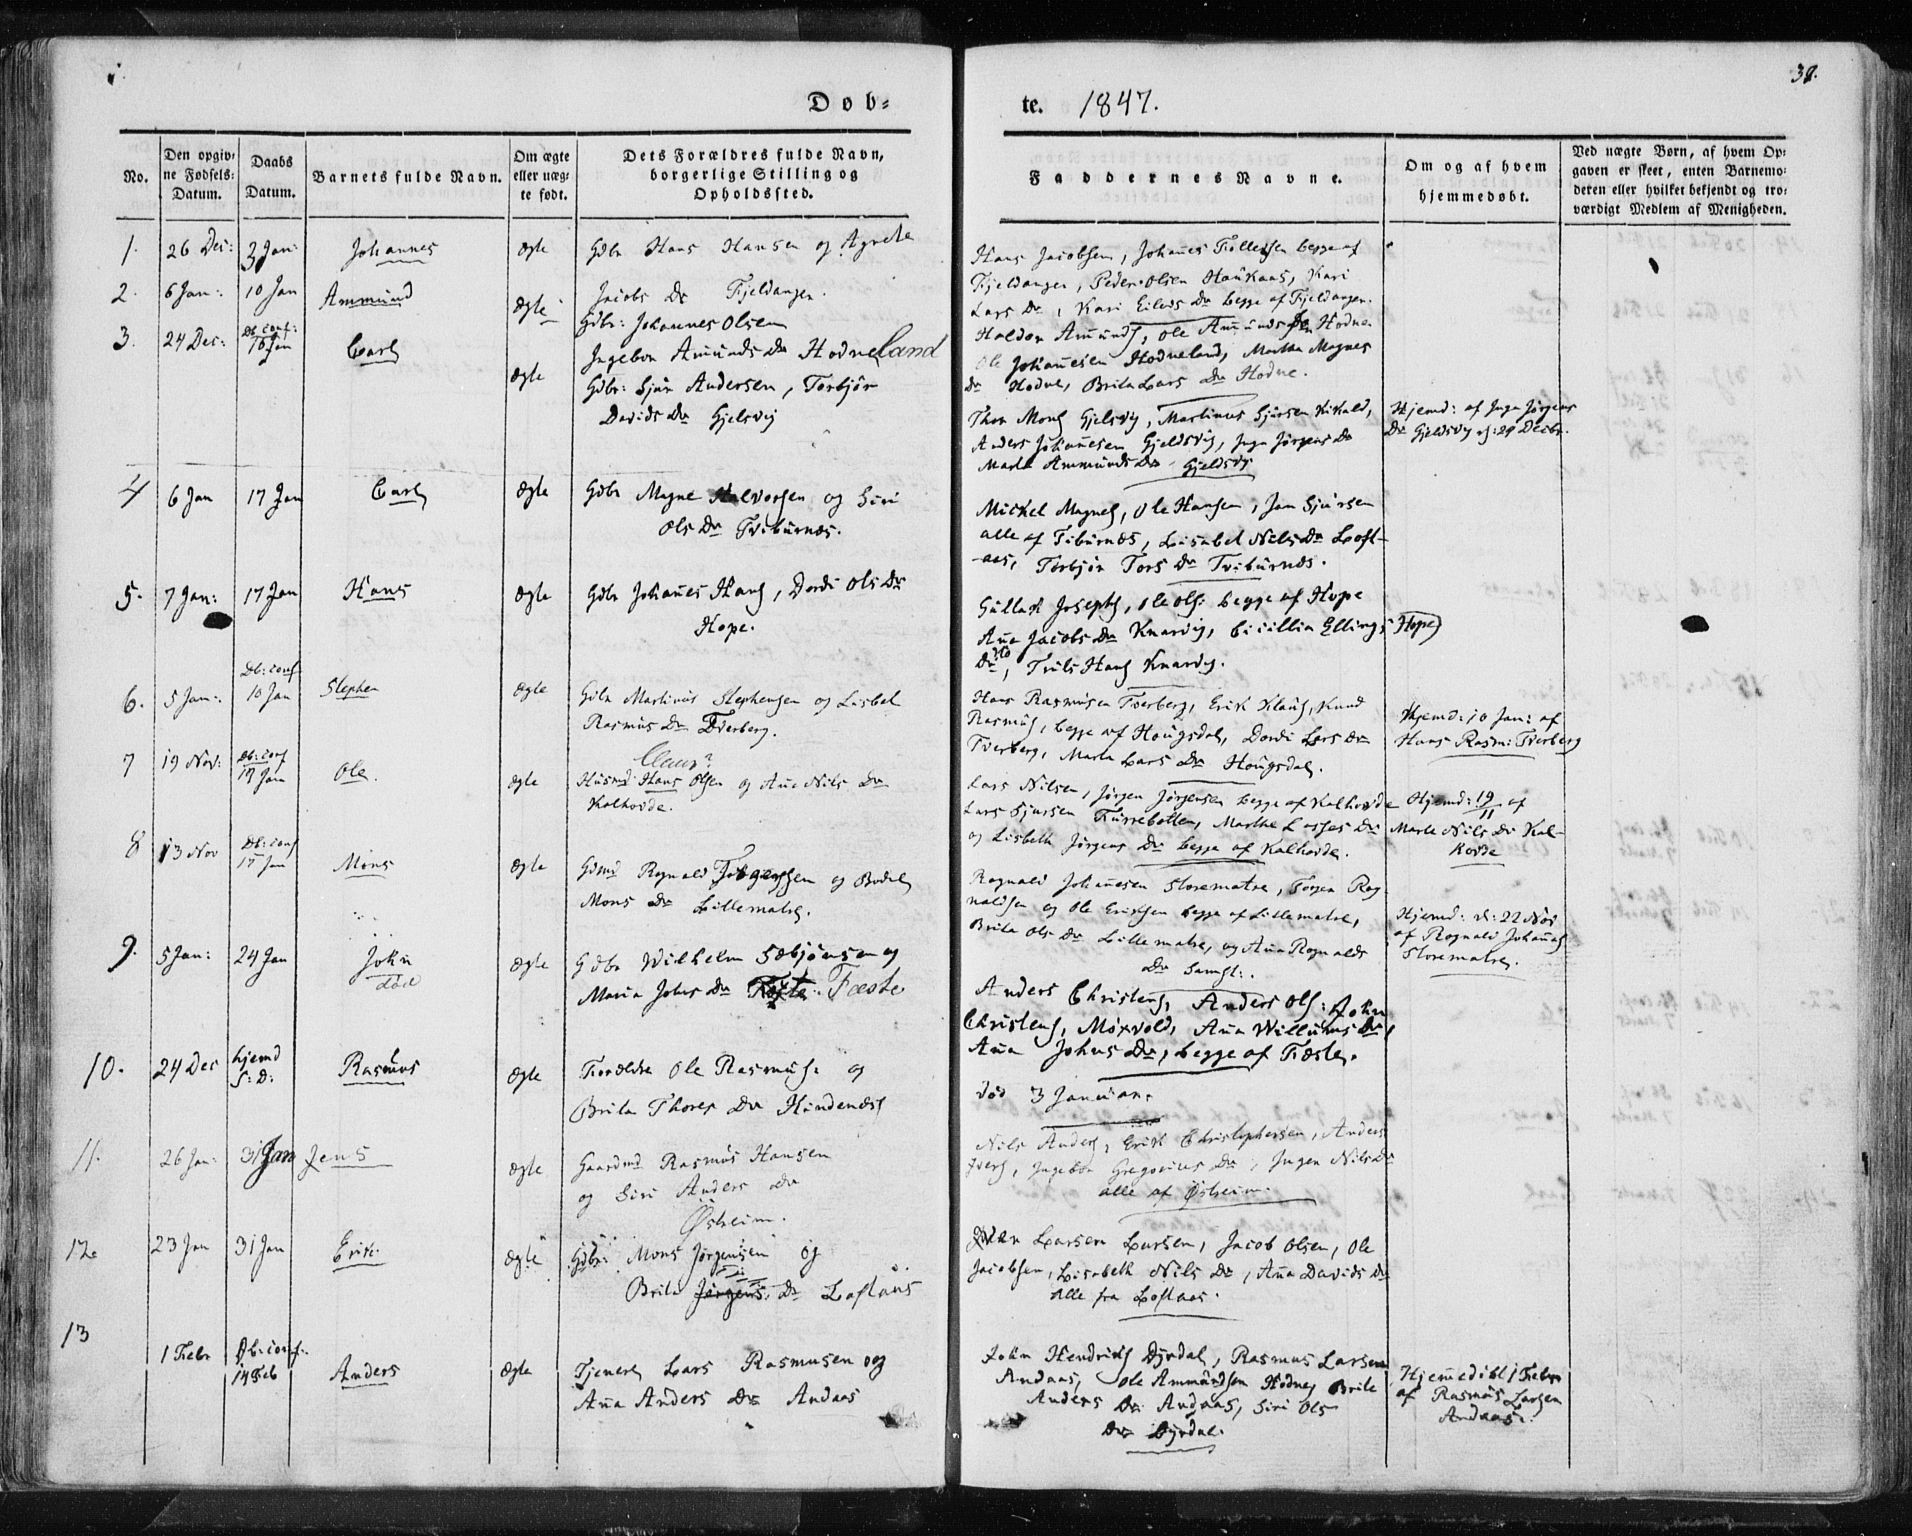 Døb-
te. 1847.
38.
No.
Den opgiv-
ne Fødsels-
Datum.
Daabs
Datum.
Barnets fulde Navn.
Om ægte
eller uæg-
te født.
Dets Forældres fulde Navn,
borgerlige Stilling og
Opholdssted.
Faddernes Navne.
Om og af hvem
hjemmedøbt.
Ved uægte Børn, af hvem Op-
gaven er skeet, enten Barnemo-
deren eller hvilket bekjendt og tro-
værdigt Medlem af Menigheden.
1. 26 Dec: 3 Jan: Johannes ægte Gdbr Hans Hansen og Agnete
Jacobs Dr Fjeldanger.
Hans Jacobsen, Johannes Tollefsen begge af
Fjeldanger, Peder Olsen Haukaas, Kari
Lars Dr, Kari Eilevs Dr begge af Fjeldanger.
2. 6 Jan: 10 Jan Ammund ægte
Gdbr: Johannes Olsen
Ingebor Amunds Dr Hodneland
Haldor Amunds, Ole Amundsen Hodne
Ole Johannesen Hodneland, Martha Magnes
Dr Hodne, Brita Lars Dr Hodne.
3. 24 Dec: Db: conf: 10 Jan Carl ægte
Gdbr: Sjur Andersen, Torbjør
Davids Dr Gjelsvig
Thor Mons Gjelsvig, Martinus Sjursen
Anders Johannesen Gjeldsvig, Inga Jørgens Dr
Marta Ammunds Dr Gjeldsvig
Hjemd: af Inga Jørgens
Dr Gjeldsvig d: 29 Decbr.
4 6 Jan 17 Jan Carl ægte Gdbr Magne Halvorsen og Siri
Ols Dr Tviburnæs.
Mickel Magnes, Ole Hansen, Jan Sjursen
alle af Tiburnæs, Lisabet Nels Dr Loft-
aas, Torbjør Tors Dr Tviburnæs.
5. 7 Jan: 17 Jan Hans ægte Gdbr Johannes Hans, Dordi Ols Dr
Hope.
Gullak Josephs, Ole Ols: begge af Hope
Ana Jacobs Dr Knarvig, Cicillia Ellings Hope
Dr, Truls Hans Knarvig.
6. 5 Jan: Db: conf 10 Jan Stephen ægte Gdbr Martinus Stephensen og Lisbet
Rasmus Dr Tverberg.
Hans Rasmusen Tverberg, Erik Klaus, Knud
Rasmus, begge af Hougsdal, Dordi Lars Dr
Tverberg, Marta Lars Dr Hougsdal.
Hjemd: 10 Jan: af
Hans Rasm: Tverberg
7 19 Nov: Db: conf 17 Jan Ole. ægte
Claus?
Husmd Hans Olsen og Ane Nils Dr
Kalhovde.
Lars Nilsen, Jørgen Jørgensen begge af Kalhovde
Lars Sjursen Furrebotten, Marthe Lasses Dr
og Lisbeth Jørgens Dr begge af Kalhovde.
Hjemd: 19/11 af
Marte Nils Dr Kal-
hovde
8 13 Nov Db: conf 17 Jan Mons ægte Gdmd Rognald Torgersen og Bodel
Mons Dr Lillematre.
Rognald Johannesen Storematre, Torger Rog-
naldsen og Ole Eriksen begge af Lillematre,
Brita Ols Dr Lillematre, og Ana Rognalds
Dr samst:.
Hjemd: d: 22 Nov
af Rognald Johanes
Storematre.
9. 5 Jan: 24 Jan John
død
ægte Gdbr Wilhelm Sæbjønsen og
Maria Johns Dr Fæste
Anders Christens, Anders Ols: John
Christens, Møxvold, Ana Willums Dr,
Ana Johns Dr, begge af Fæste.
10. 24 Dec hjemd
S: D: Rasmus ægte Forældre Ole Rasmus: og
Brita Thores Dr Hindenæs
død 3 Januar.
11. 26 Jan: 31 Jan Jens ægte Gaardmd Rasmus Hansen
og Siri Anders Dr
Østreim.
Nils Anders, Erik Christophersen, Anders
Ivers, Ingebor Gregorius Dr, Inger Nils Dr
alle af Østreim.
12. 23 Jan 31 Jan Erik. ægte Gdbr: Mons Jørgensen og
Brita Jørgens Dr Loftaas
Larsen Larsen, Jacob Olsen, Ole
Jacobsen, Lisabeth Nils Dr, Ana Davids Dr
alle fra Loftaas.
13 1 Febr Db: conf: 14 Feb Anders ægte Tjener Lars Rasmusen og
Ana Anders Dr Andaas
John Hendriks Dyrdal, Rasmus Larsen
Andaas, Ole Ammundsen Hodne, Brite
Anders Dr Andaas, Siri Ols
Dr Dyrdal.
Hjemmedøbt 1 Febr
af Rasmus Larsen
Andaas.